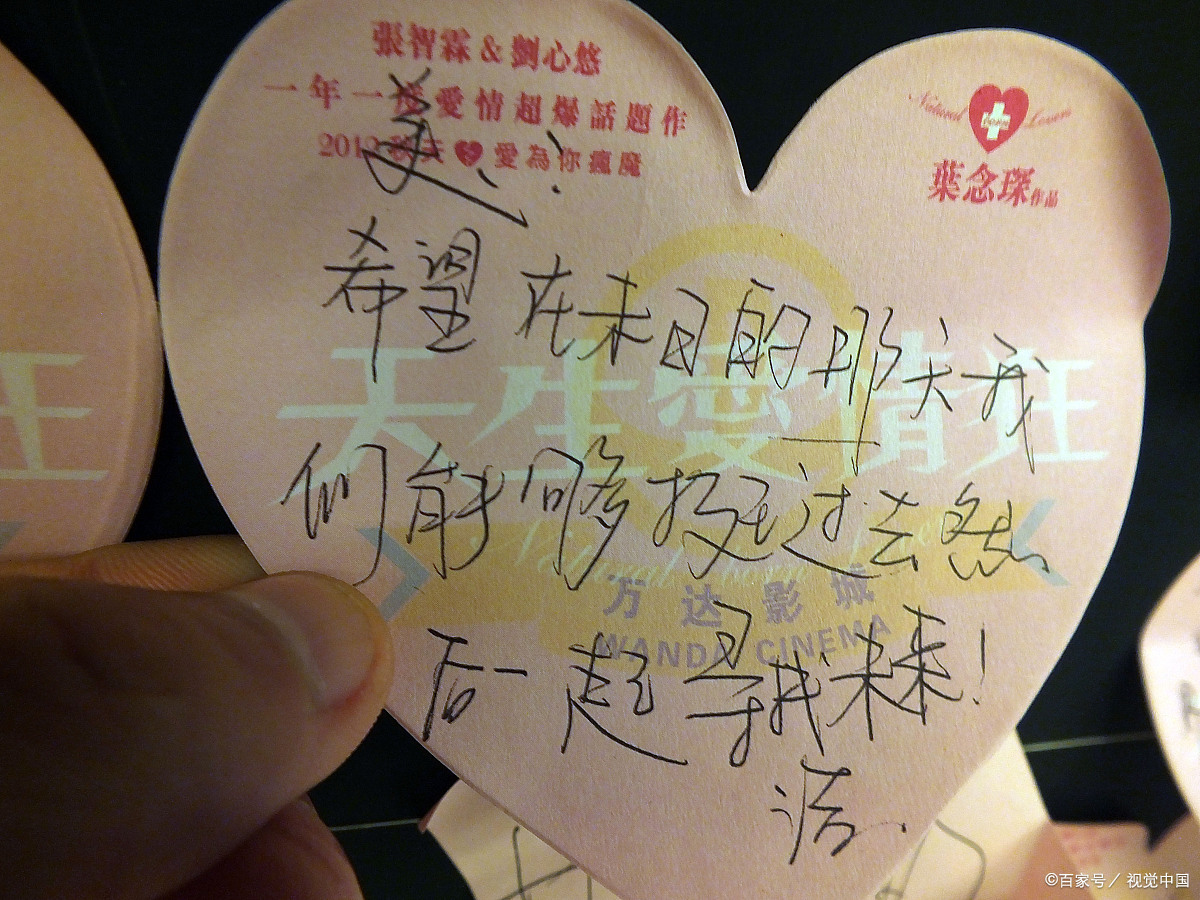 張智霖 & 劉心悠
一年一度愛情超爆話題作
2012秋天 愛為你瘋魔
Natural Born Lovers
葉念琛作品
希望在末日的那天我
们能够过去然
后一起寻找未来!
洁.
天生愛情狂
万达影城
WANDA CINEMA
狂
©百家号／视觉中国